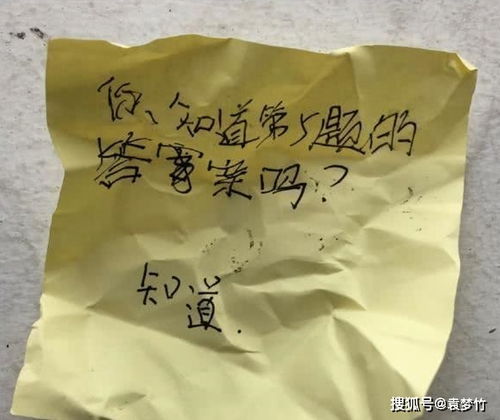 你知道第5题的
答案案吗?
知
道.
搜狐号@袁梦竹